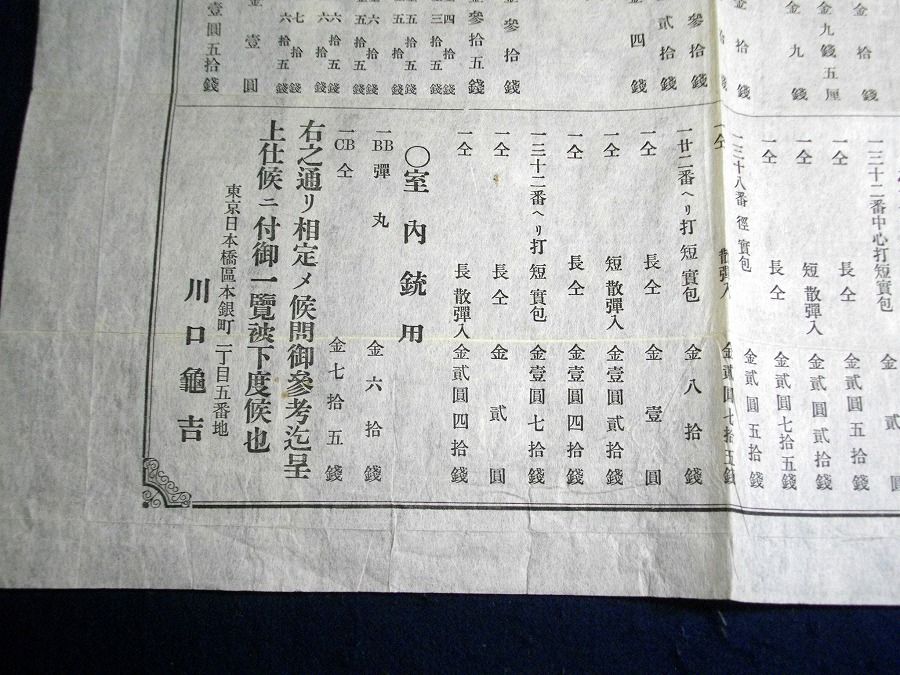 金 拾 錢
金九錢五厘
金 九 錢
金 拾 錢
參拾錢
貳拾錢
金 四 錢
金參拾錢
金參拾五錢
壹圓
壹圓五拾錢
一三十二番中心打短實包 金貳圓
一仝 長仝 金貳圓五拾錢
一仝 短散彈入 金貳圓貳拾錢
一仝 長仝 金貳圓七拾五錢
一三十八番徑實包 金貳圓五拾錢
一仝 散彈入 金貳圓七拾五錢
一廿二番ヘリ打短實包 金八拾錢
一仝 長仝 金壹圓
一仝 短散彈入 金壹圓貳拾錢
一仝 長仝 金壹圓四拾錢
一三十二番ヘリ打短實包 金壹圓七拾錢
一仝 長仝 金貳圓
一仝 長散彈入 金貳圓四拾錢
○室內銃用
一BB彈丸 金六拾錢
一CB仝 金七拾五錢
右之通リ相定メ候間御參考迄呈
上仕候ニ付御一覽被下度候也
東京日本橋區本銀町二丁目五番地
川口龜吉